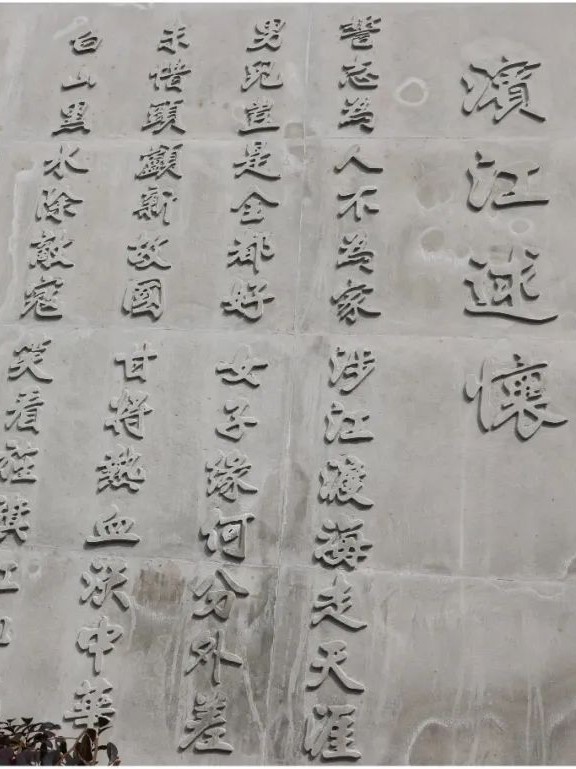 濱江述懷
誓志為人不為家 涉江渡海走天涯
男兒豈是全都好 女子緣何分外差
未惜頭顱新故國 甘將熱血沃中華
白山黑水除敵寇 笑看旌旗